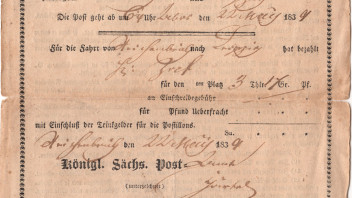 Die Post geht ab um Uhr den 22 März 1834
Für die Fahrt von Reichenbach nach Leipzig hat bezahlt
für den Platz 3 Thlr. Gr. Pf.
Einschreibegebühr
für Pfund Ueberfracht
mit Einschluß der Trinkgelder für die Postillons.
Su.
Reichenbach den 22 März 1834
Königl. Sächs. Post-Amt
(unterzeichnet)